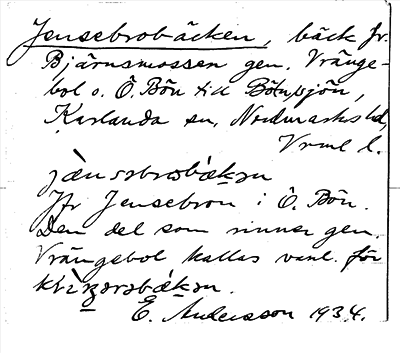 Jensebrobäcken, bäck fr.
Bjärnsmossen gen. Vränge-
bol o. Ö. Bön till Bönsjön,
Karlanda sn, Nordmarks hd,
Vrml l.
Jfr Jensebron i Ö. Bön.
Den del som rinner gen.
Vrängebol kallas vanl. för
E. Andersson 1934.